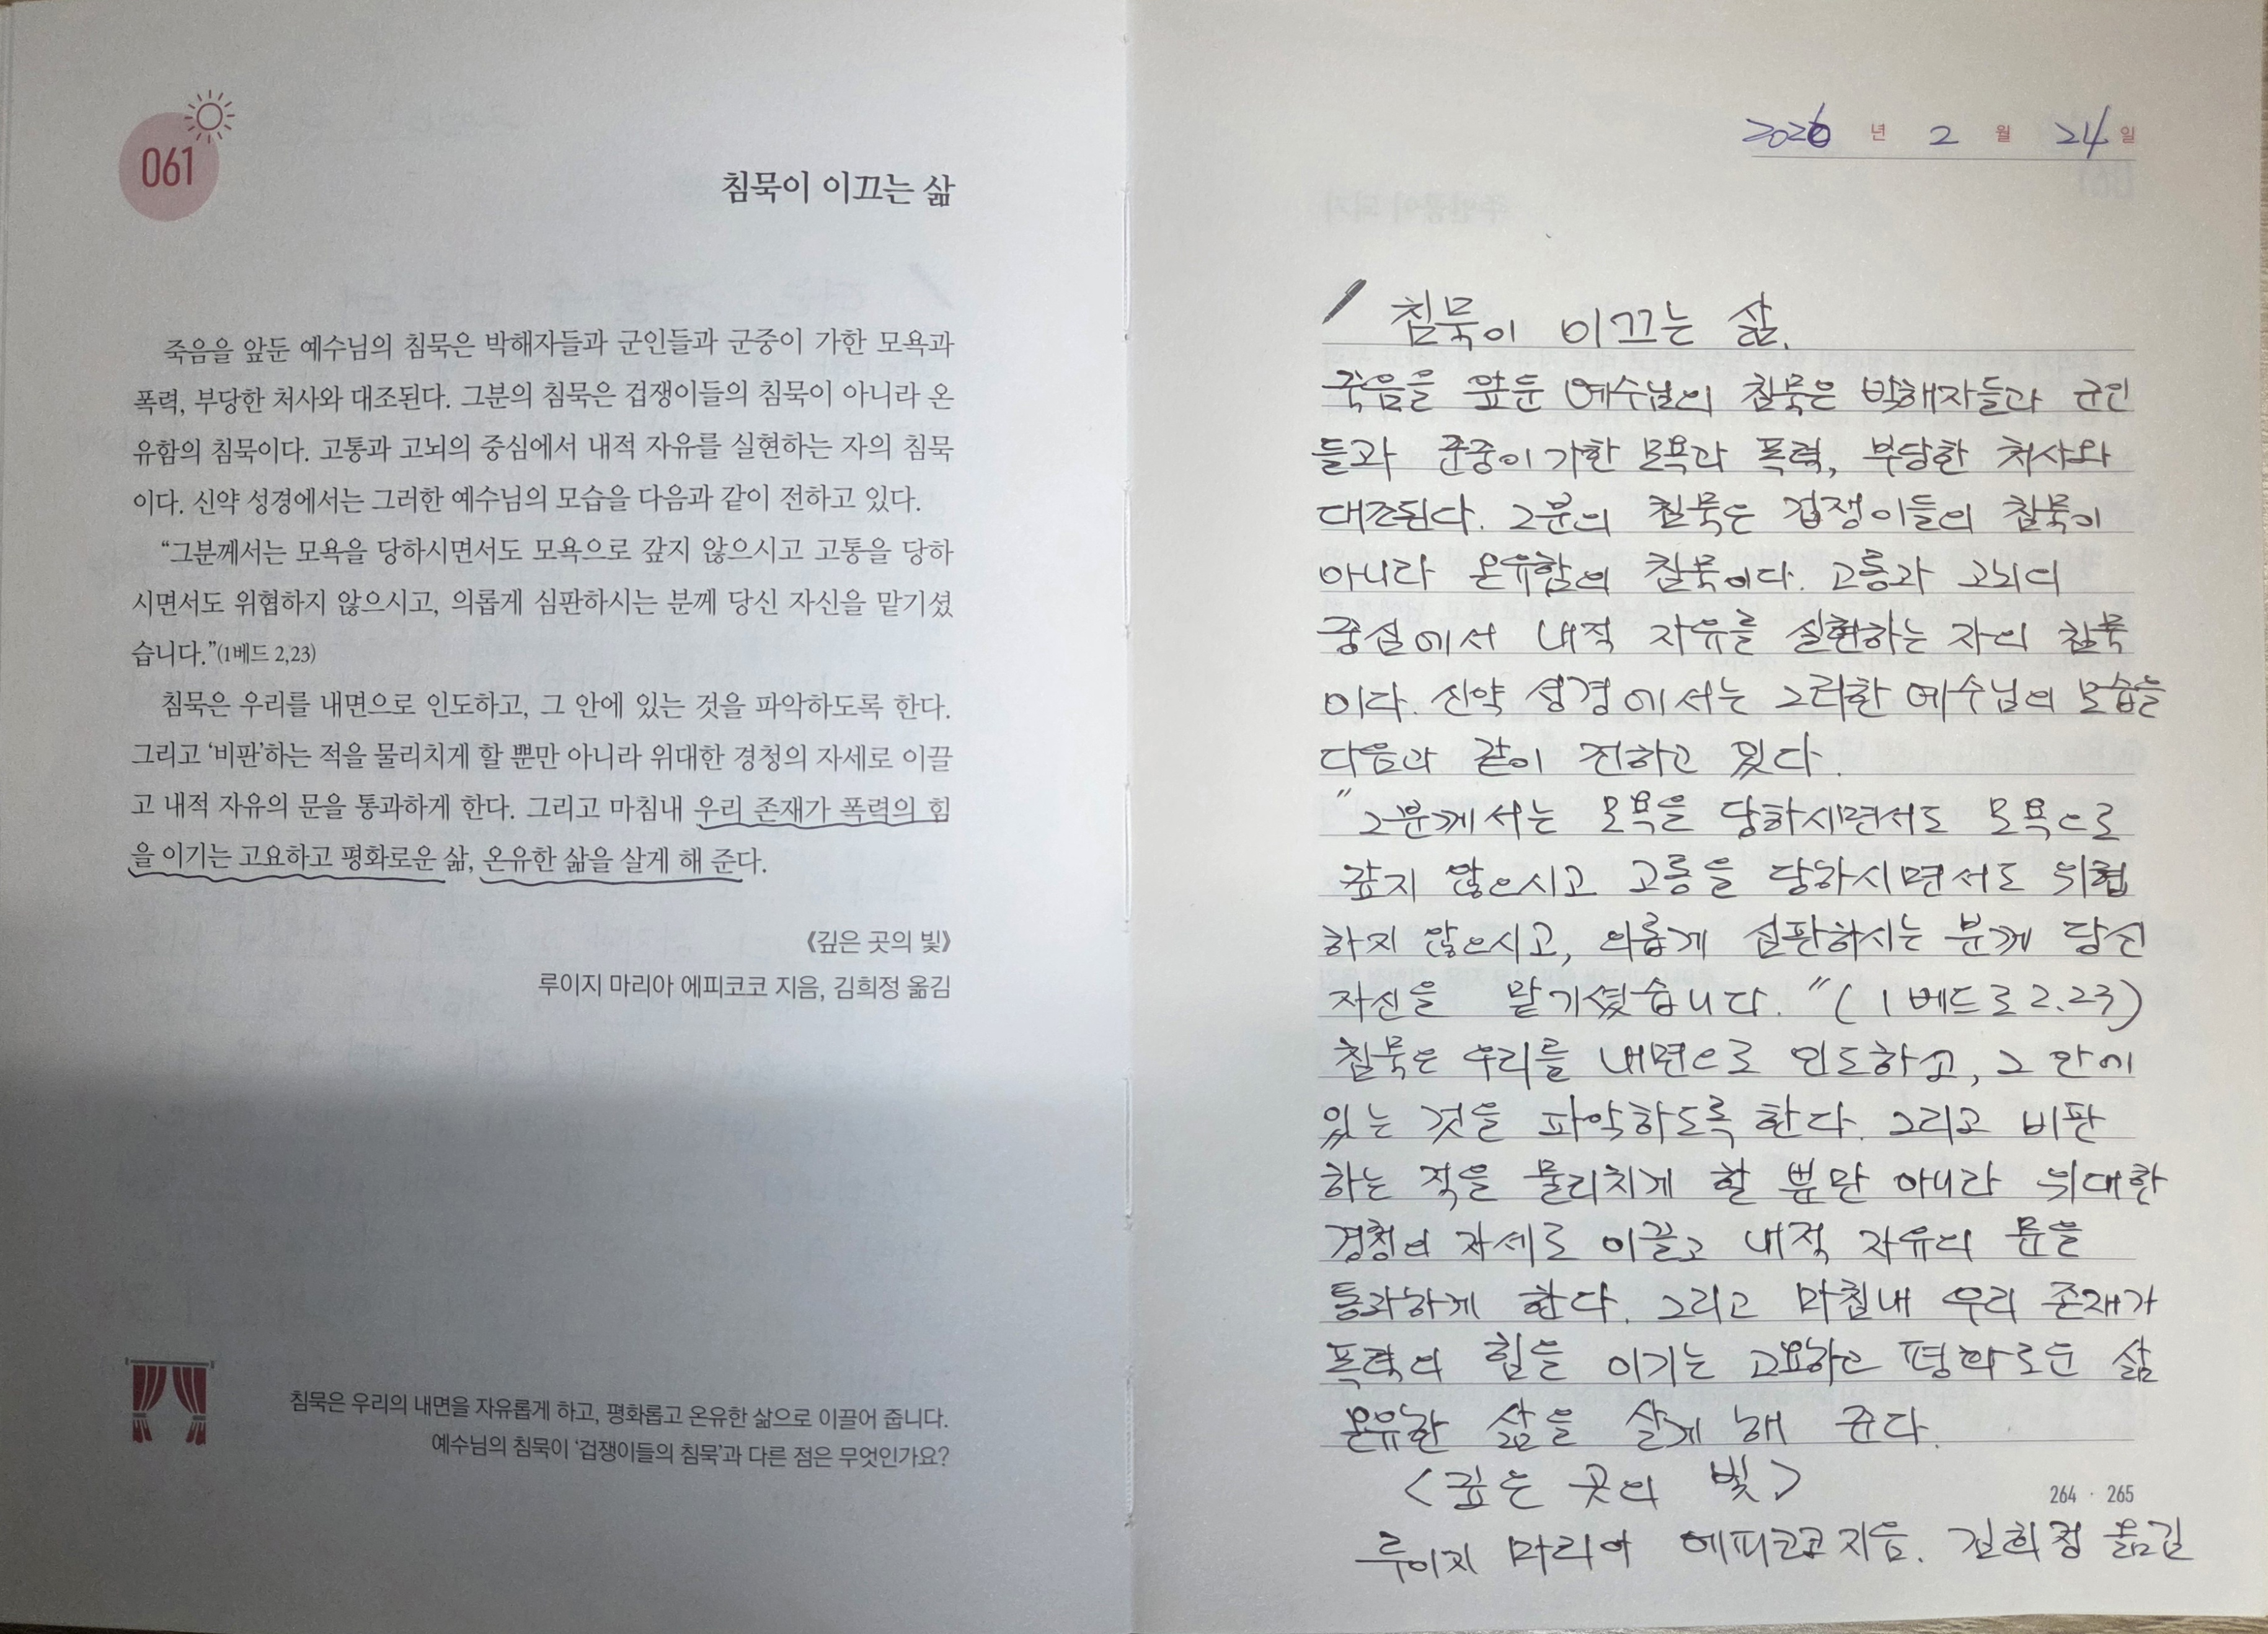 061
침묵이 이끄는 삶
죽음을 앞둔 예수님의 침묵은 박해자들과 군인들과 군중이 가한 모욕과
폭력, 부당한 처사와 대조된다. 그분의 침묵은 겁쟁이들의 침묵이 아니라 온
유함의 침묵이다. 고통과 고뇌의 중심에서 내적 자유를 실현하는 자의 침묵
이다. 신약 성경에서는 그러한 예수님의 모습을 다음과 같이 전하고 있다.
“그분께서는 모욕을 당하시면서도 모욕으로 갚지 않으시고 고통을 당하
시면서도 위협하지 않으시고, 의롭게 심판하시는 분께 당신 자신을 맡기셨
습니다.”(1베드 2,23)
침묵은 우리를 내면으로 인도하고, 그 안에 있는 것을 파악하도록 한다.
그리고 ‘비판’하는 적을 물리치게 할 뿐만 아니라 위대한 경청의 자세로 이끌
고 내적 자유의 문을 통과하게 한다. 그리고 마침내 우리 존재가 폭력의 힘
을 이기는 고요하고 평화로운 삶, 온유한 삶을 살게 해 준다.
《깊은 곳의 빛》
루이지 마리아 에피코코 지음, 김희정 옮김
침묵은 우리의 내면을 자유롭게 하고, 평화롭고 온유한 삶으로 이끌어 줍니다.
예수님의 침묵이 ‘겁쟁이들의 침묵’과 다른 점은 무엇인가요?
2026 년 2 월 24 일
침묵이 이끄는 삶.
죽음을 앞둔 예수님의 침묵은 박해자들과 군인
들과 군중이 가한 모욕과 폭력, 부당한 처사와
대조된다. 그분의 침묵은 겁쟁이들의 침묵이
아니라 온유함의 침묵이다. 고통과 고뇌의
중심에서 내적 자유를 실현하는 자의 침묵
이다. 신약 성경에서는 그러한 예수님의 모습을
다음과 같이 전하고 있다.
"그분께서는 모욕을 당하시면서도 모욕으로
갚지 않으시고 고통을 당하시면서도 위협
하지 않으시고, 의롭게 심판하시는 분께 당신
자신을 맡기셨습니다."(1베드로 2.23)
침묵은 우리를 내면으로 인도하고, 그 안에
있는 것을 파악하도록 한다. 그리고 비판
하는 적을 물리치게 할 뿐만 아니라 위대한
경청의 자세로 이끌고 내적 자유의 문을
통과하게 한다. 그리고 마침내 우리 존재가
폭력의 힘을 이기는 고요하고 평화로운 삶
온유한 삶을 살게 해 준다.
<깊은 곳의 빛>
264 · 265
루이지 마리아 에피코코 지음. 김희정 옮김